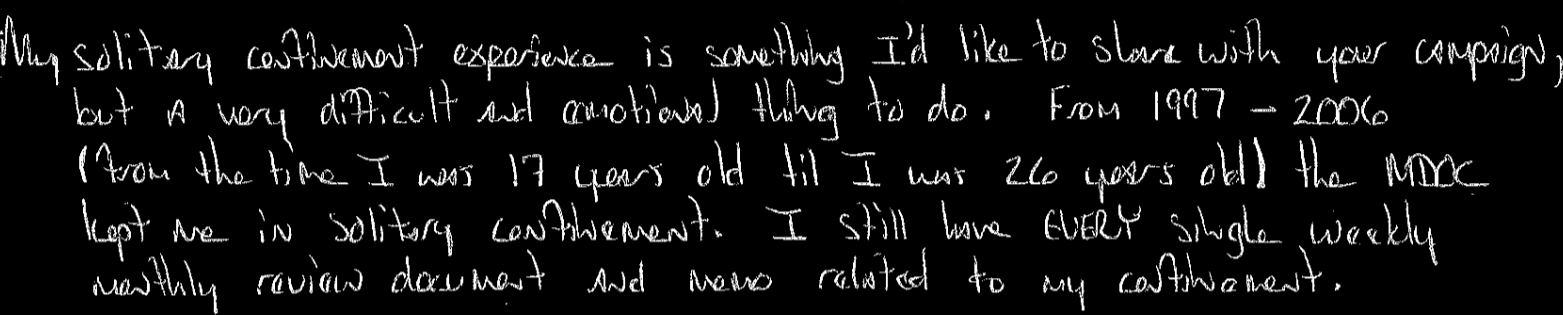 My solitary confinement experience is something I'd like to share with your campaign,
but A very difficult And emotional thing to do. From 1997 - 2006
(from the time I was 17 years old til I was 26 years old) the MDOC
kept me in solitary confinement. I still have EVERY single weekly
monthly review document And memo related to my confinement.